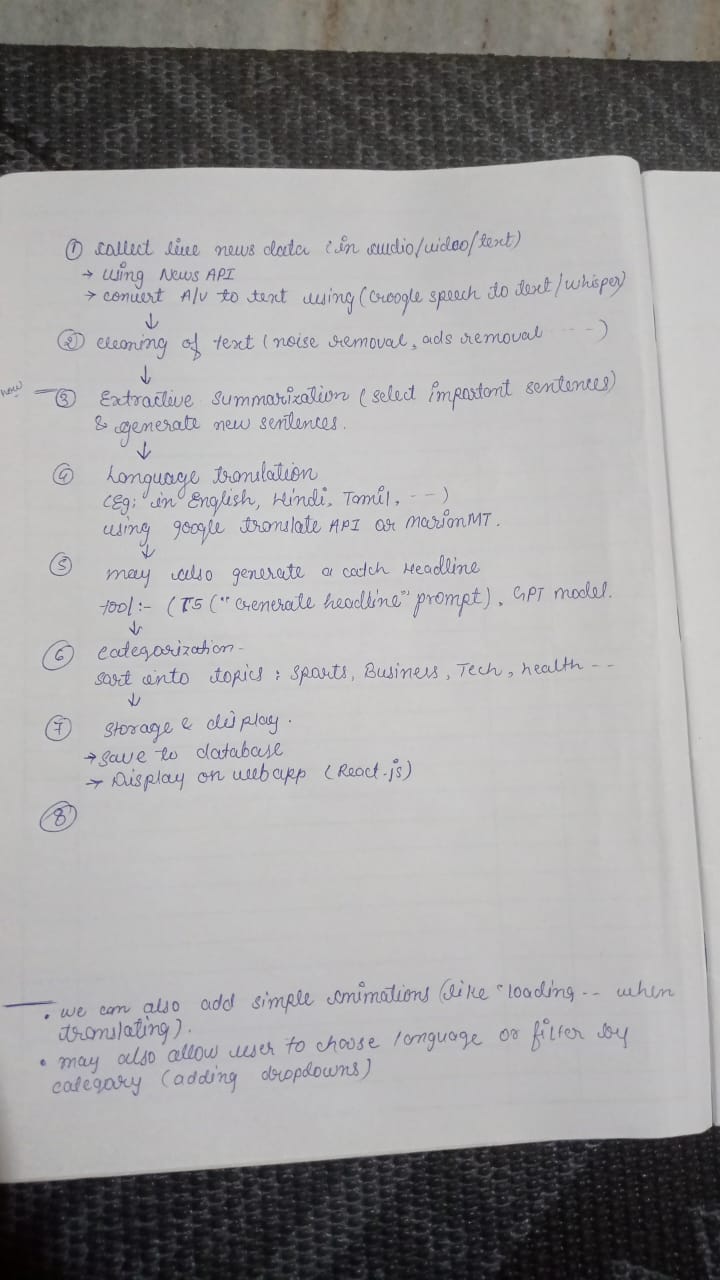 ① collect live news data (in audio/video/text)
→ using News API
→ convert A/V to text using (Google speech to text/whisper)
↓
② cleaning of text (noise removal, ads removal ---)
↓
now
③ Extractive summarization (select important sentences)
& generate new sentences.
↓
④ Language translation
(Eg; in English, Hindi, Tamil, --)
using google translate API or MarionMT.
↓
⑤ may also generate a catch Headline
tool:- (T5 ("Generate headline" prompt), GPT model.
↓
⑥ categorization-
sort into topics : sports, Business, Tech, health --
↓
⑦ storage & display.
→ save to database
→ Display on webapp (React.js)
⑧
• we can also add simple animations (like "loading -- when
translating).
• may also allow user to choose language or filter by
category (adding dropdowns)